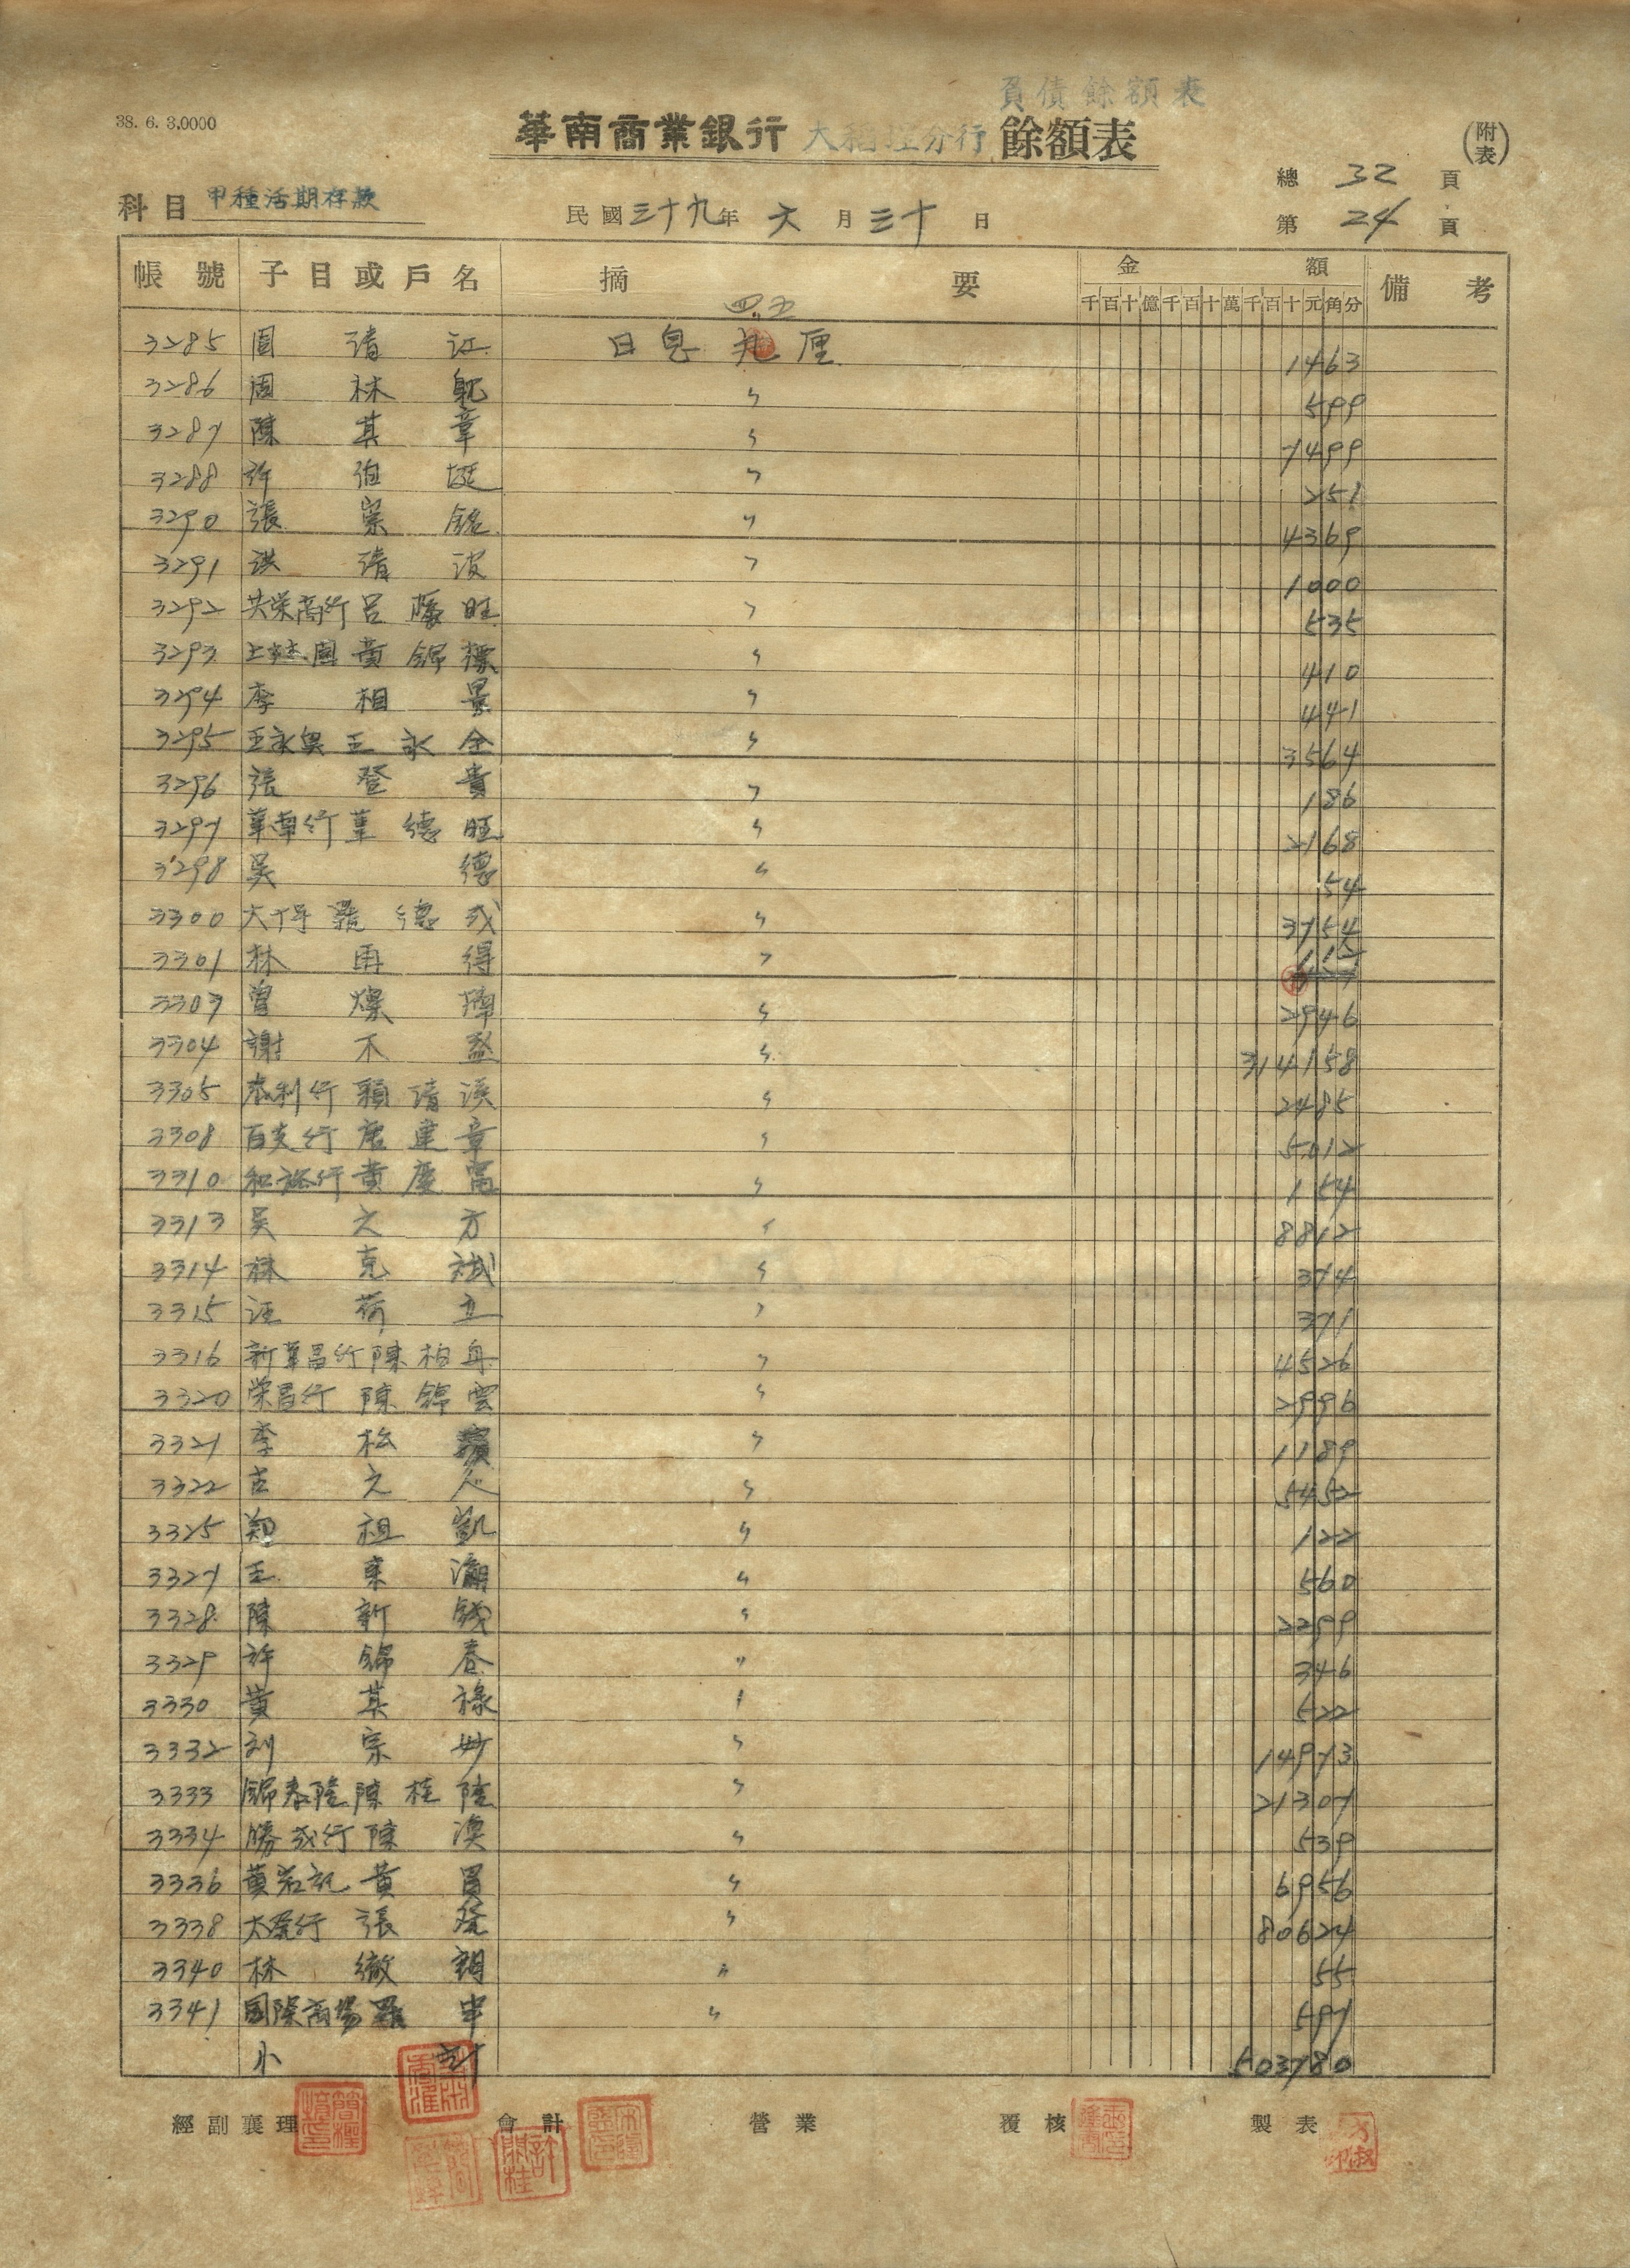 負債餘額表
38. 6. 3.0000
華南商業銀行 大稻埕分行 餘額表
(附表)
總 32 頁
科目 甲種活期存款
民國三十九年 六 月 三十 日
第 24 頁
帳號 子目或戶名 摘要 金額 備考
千百十億千百十萬千百十元角分
四.五
3285 周清江 日息 九 厘 1463
3286 周林 〃 599
3287 陳其章 〃 7499
3288 許廷 〃 251
3290 張崇銘 〃 4369
3291 洪清波 〃 1000
3292 共榮商行 呂旺 〃 535
3293 園 黃錦標 〃 410
3294 李相景 〃 441
3295 王永興 王永全 〃 3564
3296 張登貴 〃 186
3297 華南行 葉德旺 〃 2168
3298 吳德 〃 54
3300 大 德成 〃 3754
3301 林再得 〃 112
3303 曾燦 〃 2946
3304 謝不 〃 314158
3305 本利行 賴清溪 〃 2485
3308 百 行 唐建章 〃 5012
3310 和裕行 黃慶 〃 154
3313 吳文方 〃 8812
3314 林克斌 〃 374
3315 汪荷立 〃 371
3316 新華昌行 陳柏舟 〃 4526
3320 榮昌行 陳錦雲 〃 2996
3321 李松 〃 1189
3322 古之人 〃 5452
3325 鄭祖凱 〃 122
3327 王東 〃 560
3328 陳新錢 〃 2299
3329 許錦春 〃 346
3330 黃其祿 〃 522
3332 劉宗妙 〃 14973
3333 錦泰隆 陳桂陸 〃 21307
3334 勝成行 陳 〃 539
3336 記 黃 〃 6956
3338 大 行 張發 〃 80624
3340 林徹 〃 55
3341 國際商場 羅申 〃 597
小計 503780
經副襄理 會計 營業 覆核 製表